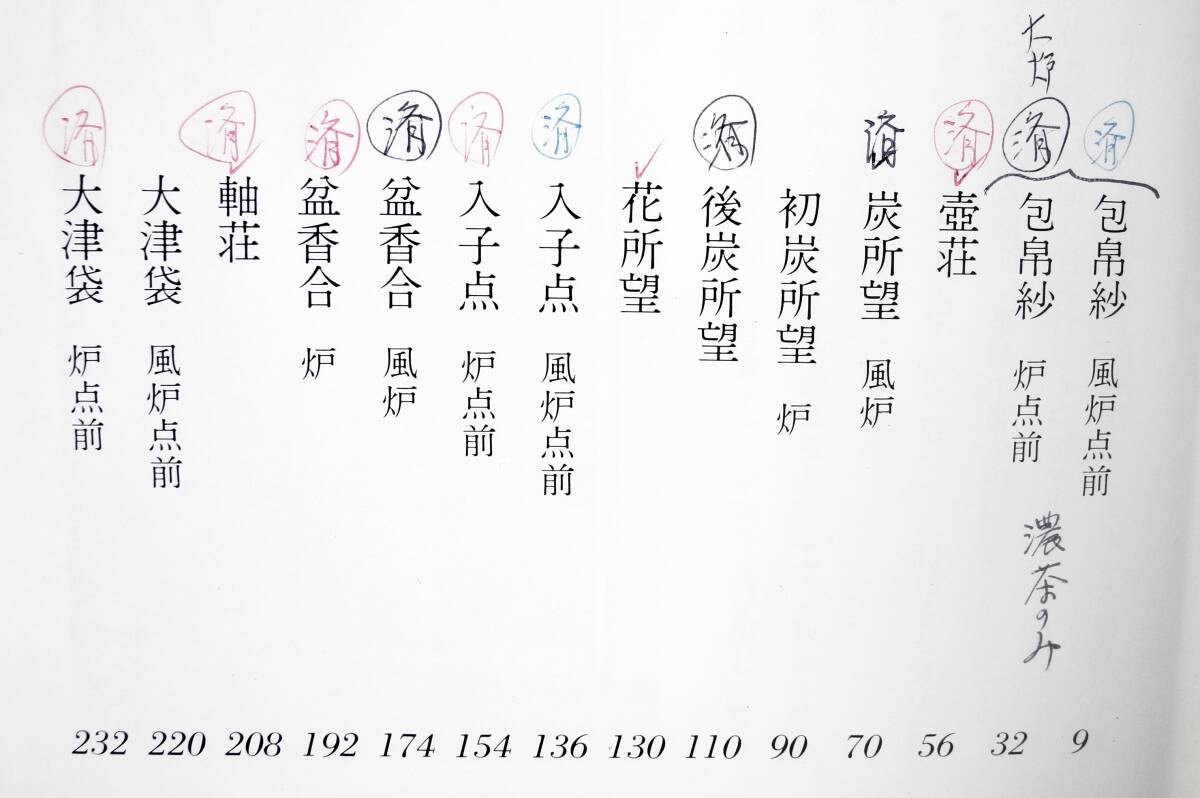 済
包帛紗 風炉点前
9
大炉
済
包帛紗 炉点前
濃茶のみ
32
済
壺荘
56
済
炭所望 風炉
70
初炭所望 炉
90
済
後炭所望
110
花所望
130
済
入子点 風炉点前
136
済
入子点 炉点前
154
済
盆香合 風炉
174
済
盆香合 炉
192
済
軸荘
208
大津袋 風炉点前
220
済
大津袋 炉点前
232